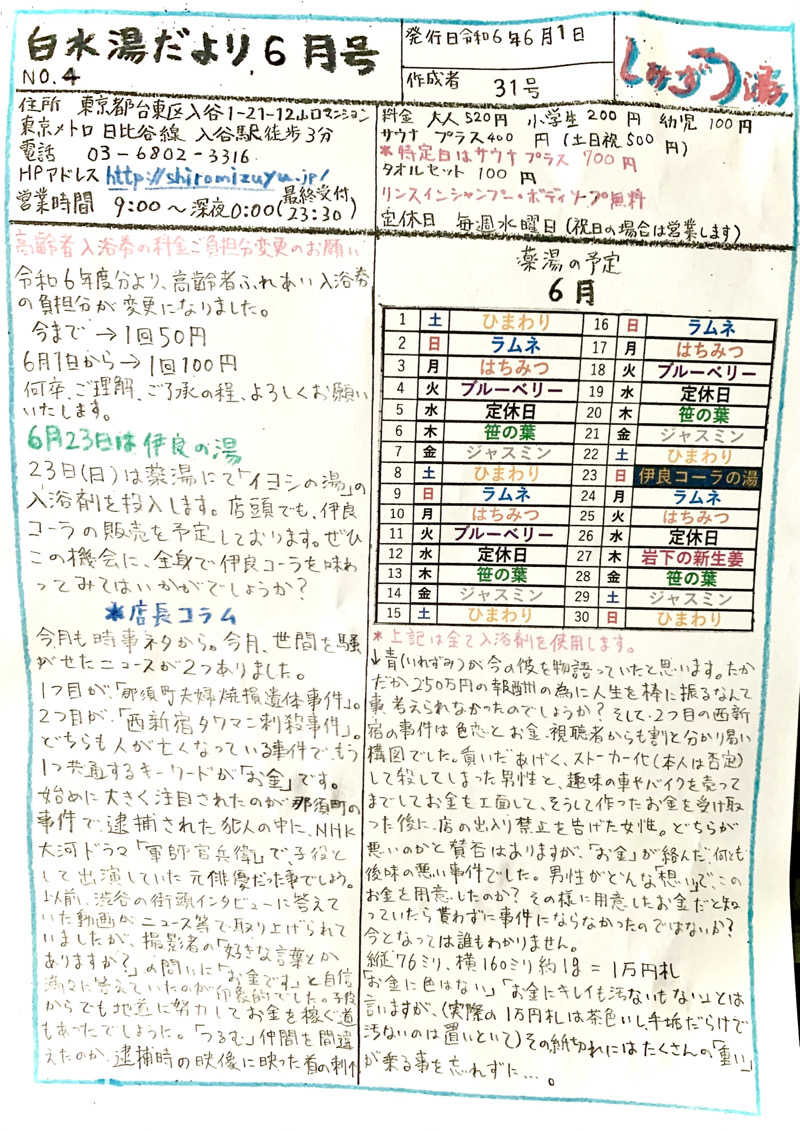 白水湯だより6月号
NO.4
発行日令和6年6月1日
作成者 31号
しみずゆ湯
住所 東京都台東区入谷1-21-12山口マンション
東京メトロ 日比谷線 入谷駅徒歩3分
電話 03-6802-3316
HPアドレス http://shiromizuyu.jp/
営業時間 9:00〜深夜0:00(最終受付23:30)
料金 大人520円 小学生200円 幼児100円
サウナ プラス400円(土日祝500円)
*特定日はサウナプラス700円
タオルセット 100円
リンスインシャンプー・ボディソープ無料
定休日 毎週水曜日(祝日の場合は営業します)
高齢者入浴券の料金ご負担分変更のお願い
令和6年度分より、高齢者ふれあい入浴券
の負担分が変更になりました。
今まで→1回50円
6月1日から→1回100円
何卒、ご理解、ご了承の程、よろしくお願い
いたします。
6月23日は伊良の湯
23日(日)は薬湯にて「イヨシの湯」の
入浴剤を投入します。店頭でも、伊良
コーラの販売を予定しております。ぜひ
この機会に、全身で伊良コーラを味わ
ってみてはいかがでしょうか?
*店長コラム
今月も時事ネタから。今月、世間を騒
がせたニュースが2つありました。
1つ目が、「那須町夫婦焼損遺体事件」。
2つ目が、「西新宿タワマン刺殺事件」。
どちらも人が亡くなっている事件で、もう
1つ共通するキーワードが「お金」です。
始めに大きく注目されたのが那須町の
事件で、逮捕された犯人の中に、NHK
大河ドラマ「軍師官兵衛」で、子役と
して出演していた元俳優だった事でしょう。
以前、渋谷の街頭インタビューに答えて
いた動画がニュース等で取り上げられて
いましたが、撮影者の「好きな言葉とか
ありますか?」の問いに「お金です」と自信
満々に答えていたのが印象的でした。子役
からでも地道に努力してお金を稼ぐ道
もあったでしょうに。「つるむ」仲間を間違
えたのか、逮捕時の映像に映った首の刺↑
薬湯の予定
6月
1 土 ひまわり
2 日 ラムネ
3 月 はちみつ
4 火 ブルーベリー
5 水 定休日
6 木 笹の葉
7 金 ジャスミン
8 土 ひまわり
9 日 ラムネ
10 月 はちみつ
11 火 ブルーベリー
12 水 定休日
13 木 笹の葉
14 金 ジャスミン
15 土 ひまわり
16 日 ラムネ
17 月 はちみつ
18 火 ブルーベリー
19 水 定休日
20 木 笹の葉
21 金 ジャスミン
22 土 ひまわり
23 日 伊良コーラの湯
24 月 ラムネ
25 火 はちみつ
26 水 定休日
27 木 岩下の新生姜
28 金 笹の葉
29 土 ジャスミン
30 日 ひまわり
*上記は全て入浴剤を使用します。
↓青(いれずみ)が今の彼を物語っていたと思います。たか
だか250万円の報酬の為に人生を棒に振るなんて
事、考えられなかったのでしょうか?そして、2つ目の西新
宿の事件は色恋とお金、視聴者からも割と分かり易い
構図でした。貢いだあげく、ストーカー化(本人は否定)
して殺してしまった男性と、趣味の車やバイクを売って
までしてお金を工面して、そうして作ったお金を受け取
った後に、店の出入り禁止を告げた女性。どちらが
悪いのかと賛否はありますが、「お金」が絡んだ、何とも
後味の悪い事件でした。男性がどんな「想い」で、この
お金を用意したのか?その様に用意したお金だと知
っていたら貰わずに事件にならなかったのではないか?
今となっては誰もわかりません。
縦76ミリ、横160ミリ約1g=1万円札
「お金に色はない」「お金にキレイも汚ないもない」とは
言いますが、(実際の1万円札は茶色いし手垢だらけで
汚ないのは置いといて)その紙切れにはたくさんの「重い」
が乗る事を忘れずに…。